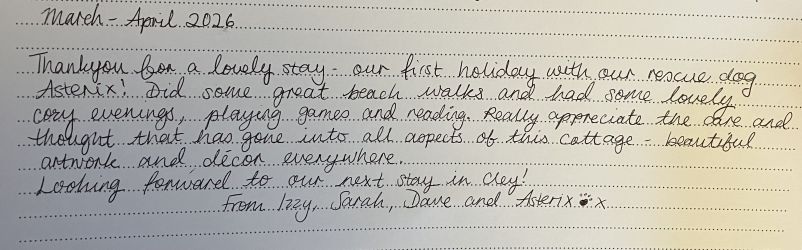 March - April 2026
Thankyou for a lovely stay - our first holiday with our rescue dog
Asterix! Did some great beach walks and had some lovely
cozy evenings, playing games and reading. Really appreciate the care and
thought that has gone into all aspects of this cottage - beautiful
artwork and décor everywhere.
Looking forward to our next stay in Cley!
from Izzy, Sarah, Dave and Asterix 🐾 x